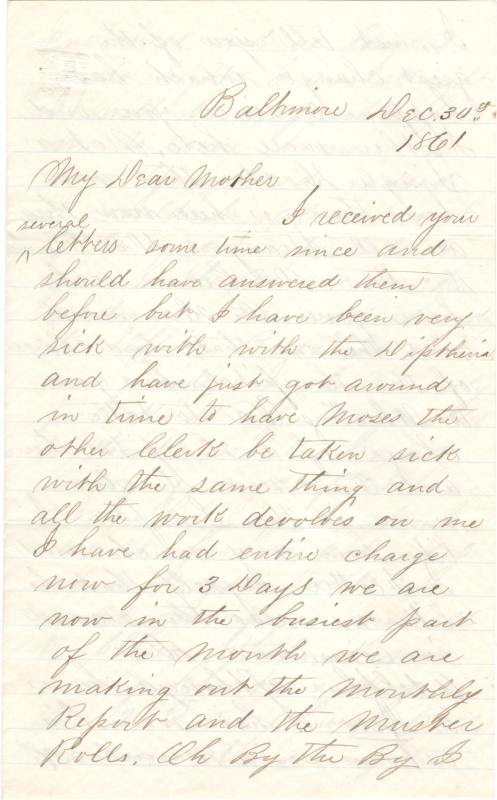 Baltimore Dec. 30th
1861
My Dear Mother
I received your
several
letters some time since and
should have answered them
before but I have been very
sick with with the Diptheria
and have just got around
in time to have Moses the
other Clerk be taken sick
with the same thing and
all the work devolves on me
I have had entire charge
now for 3 Days we are
now in the busiest part
of the month we are
making out the Monthly
Report and the Muster
Rolls. Oh By the By I